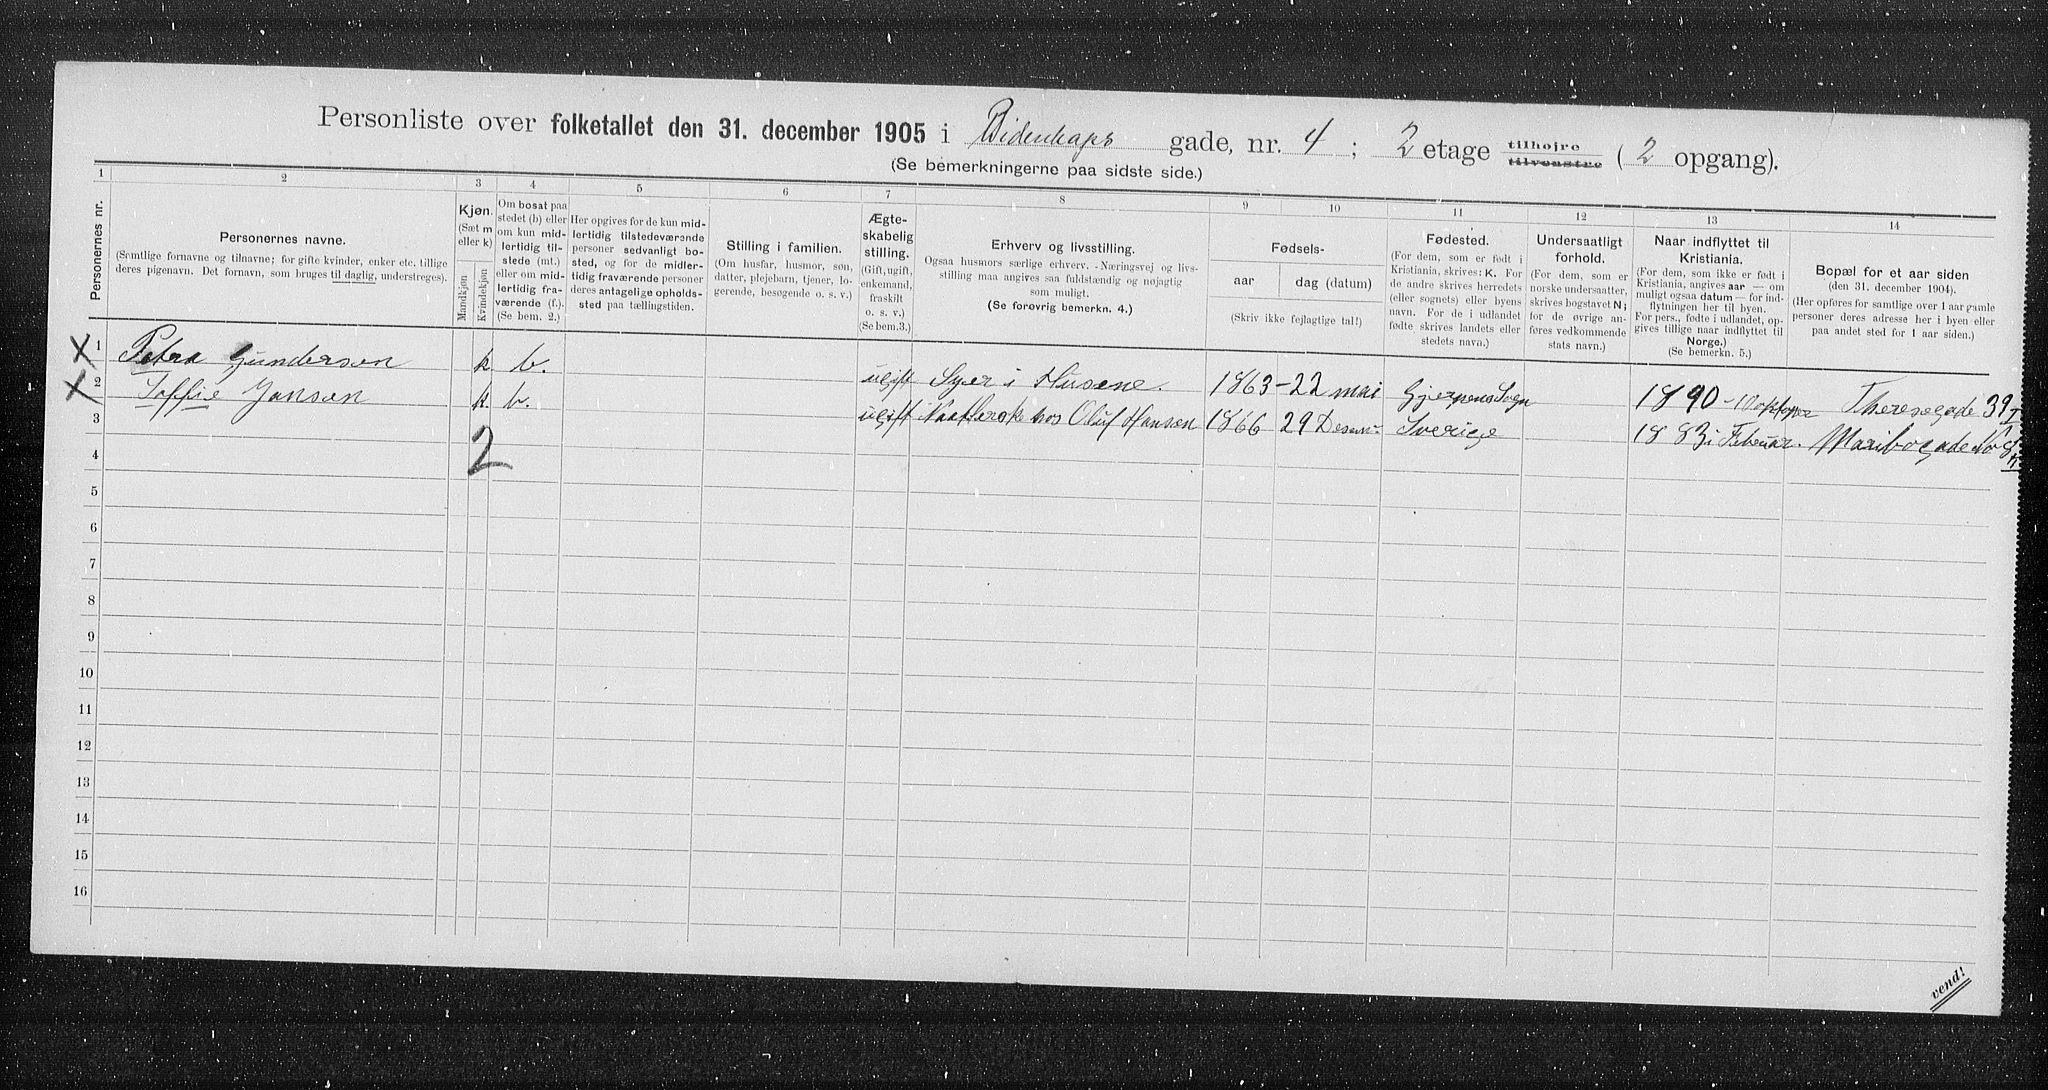 Personliste over folketallet den 31. december 1905 i Bidenkaps gade, nr. 4 ; 2 etage tilhøjre tilvenstre ( 2 opgang).
(Se bemerkningerne paa sidste side.)
1 2 3 4 5 6 7 8 9 10 11 12 13 14
Personernes nr.
Personernes navne.
(Samtlige fornavne og tilnavne; for gifte kvinder, enker etc. tillige
deres pigenavn. Det fornavn, som bruges til daglig, understreges).
Kjøn.
(Sæt m
eller k)
Mandkjøn
Kvindekjøn
Om bosat paa
stedet (b) eller
om kun mid-
lertidig til-
stede (mt.)
eller om mid-
lertidig fra-
værende (f.).
(Se bem. 2.)
Her opgives for de kun mid-
lertidig tilstedeværende
personer sedvanligt bo-
sted, og for de midler-
tidig fraværende personer
deres antagelige opholds-
sted paa tællingstiden.
Stilling i familien.
(Om husfar, husmor, søn,
datter, plejebarn, tjener, lo-
gerende, besøgende o. s. v.)
Ægte-
skabelig
stilling.
(Gift, ugift,
enkemand,
fraskilt
o. s. v.)
(Se bem.3.)
Erhverv og livsstilling.
Ogsaa husmors særlige erhverv. - Næringsvej og livs-
stilling maa angives saa fuldstændig og nøjagtig
som muligt.
(Se forøvrig bemerkn. 4.)
Fødsels-
aar dag (datum)
(Skriv ikke fejlagtige tal!)
Fødested.
(For dem, som er født i
Kristiania, skrives: K. For
de andre skrives herredets
(eller sognets) eller byens
navn. For de i udlandet
fødte skrives landets eller
stedets navn.)
Undersaatligt
forhold.
(For dem, som er
norske undersaatter,
skrives bogstavet N;
for de øvrige an-
føres vedkommende
stats navn.)
Naar indflyttet til
Kristiania.
(For dem, som ikke er født i
Kristiania, angives aar — om
muligt ogsaa datum — for ind-
flytningen her til byen.
For pers., fødte i udlandet, op-
gives tillige naar indflyttet til
Norge.)
(Se bemerkn. 5.)
Bopæl for et aar siden
(den 31. december 1904).
(Her opføres for samtlige over 1 aar gamle
personer deres adresse her i byen eller
paa andet sted for 1 aar siden.)
X 1 Petra Gundersen k. b. ugift Syer i Husene. 1863 - 22 mai Gjerpens Sogn 1890 - Theresegade 39 I
X 2 Soffie Jansen k. b. ugift hos Oluf Hansen 1866 29 Sverige 1883 i Februar. Maribogade No 8
3
2
4
5
6
7
8
9
10
11
12
13
14
15
16
vend!